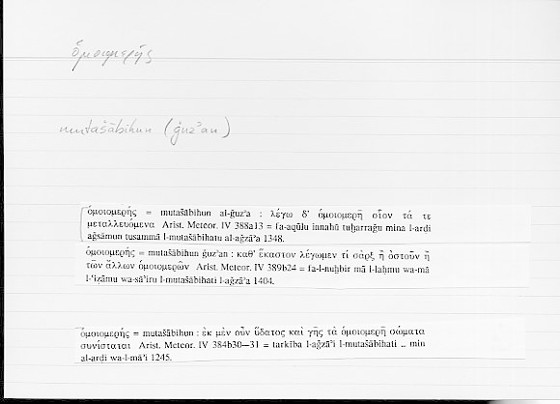 ὁμοιομερής
mutašābihun (ǧuzʾan)
ὁμοιομερής = mutašābihun al-ǧuzʾa : λέγω δ’ ὁμοιομερῆ οἷον τά τε
μεταλλευόμενα Arist. Meteor. IV 388a13 = fa-aqūlu innahū tuḫarraǧu mina l-arḍi
aǧsāmun tusammā l-mutašābihatu al-aǧzāʾa 1348.
ὁμοιομερής = mutašābihun ǧuzʾan : καθ’ ἕκαστον λέγωμεν τί σὰρξ ἢ ὀστοῦν ἢ
τῶν ἄλλων ὁμοιομερῶν Arist. Meteor. IV 389b24 = fa-l-nuḫbir mā l-laḥmu wa-mā
l-ʿiẓāmu wa-sāʾiru l-mutašābihati l-aǧzāʾa 1404.
ὁμοιομερής = mutašābihun : ἐκ μὲν οὖν ὕδατος καὶ γῆς τὰ ὁμοιομερῆ σώματα
συνίσταται Arist. Meteor. IV 384b30—31 = tarkība l-aǧzāʾi l-mutašābihati .. min
al-arḍi wa-l-māʾi 1245.